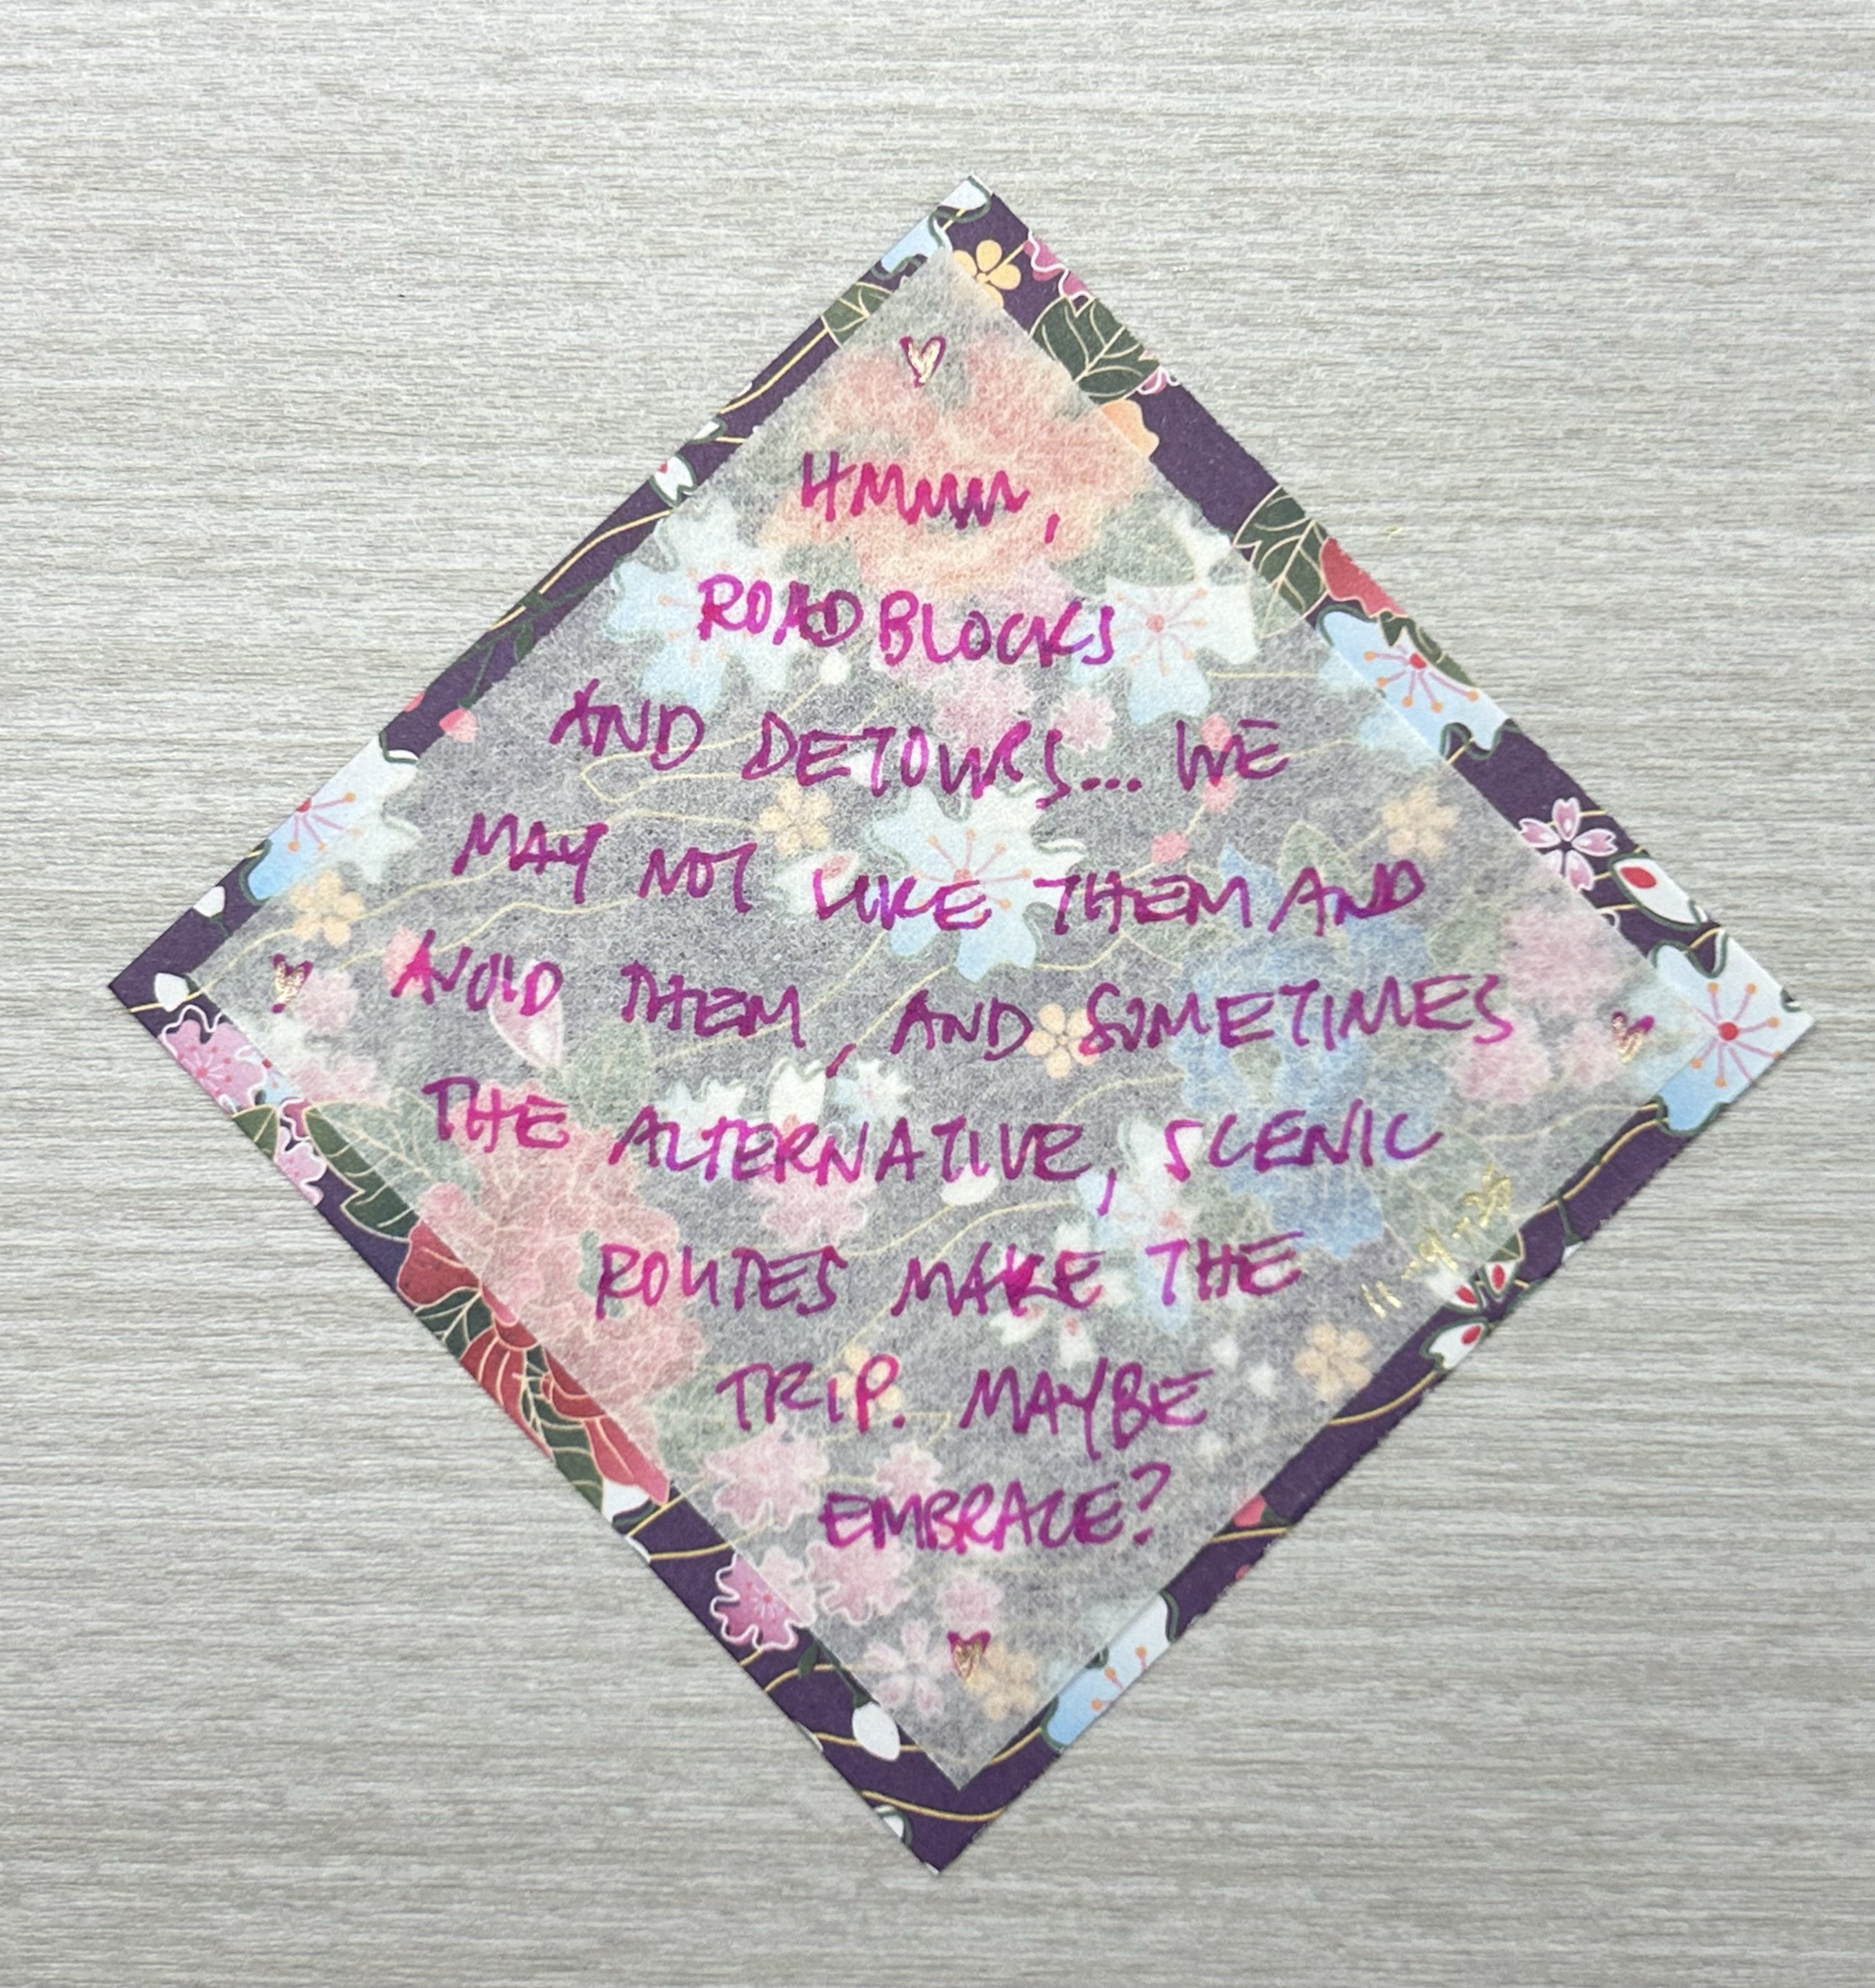 HMmmm,
ROAD BLOCKS
AND DETOURS... WE
MAY NOT LIKE THEM AND
AVOID THEM, AND SOMETIMES
THE ALTERNATIVE, SCENIC
ROUTES MAKE THE
TRIP. MAYBE
EMBRACE?